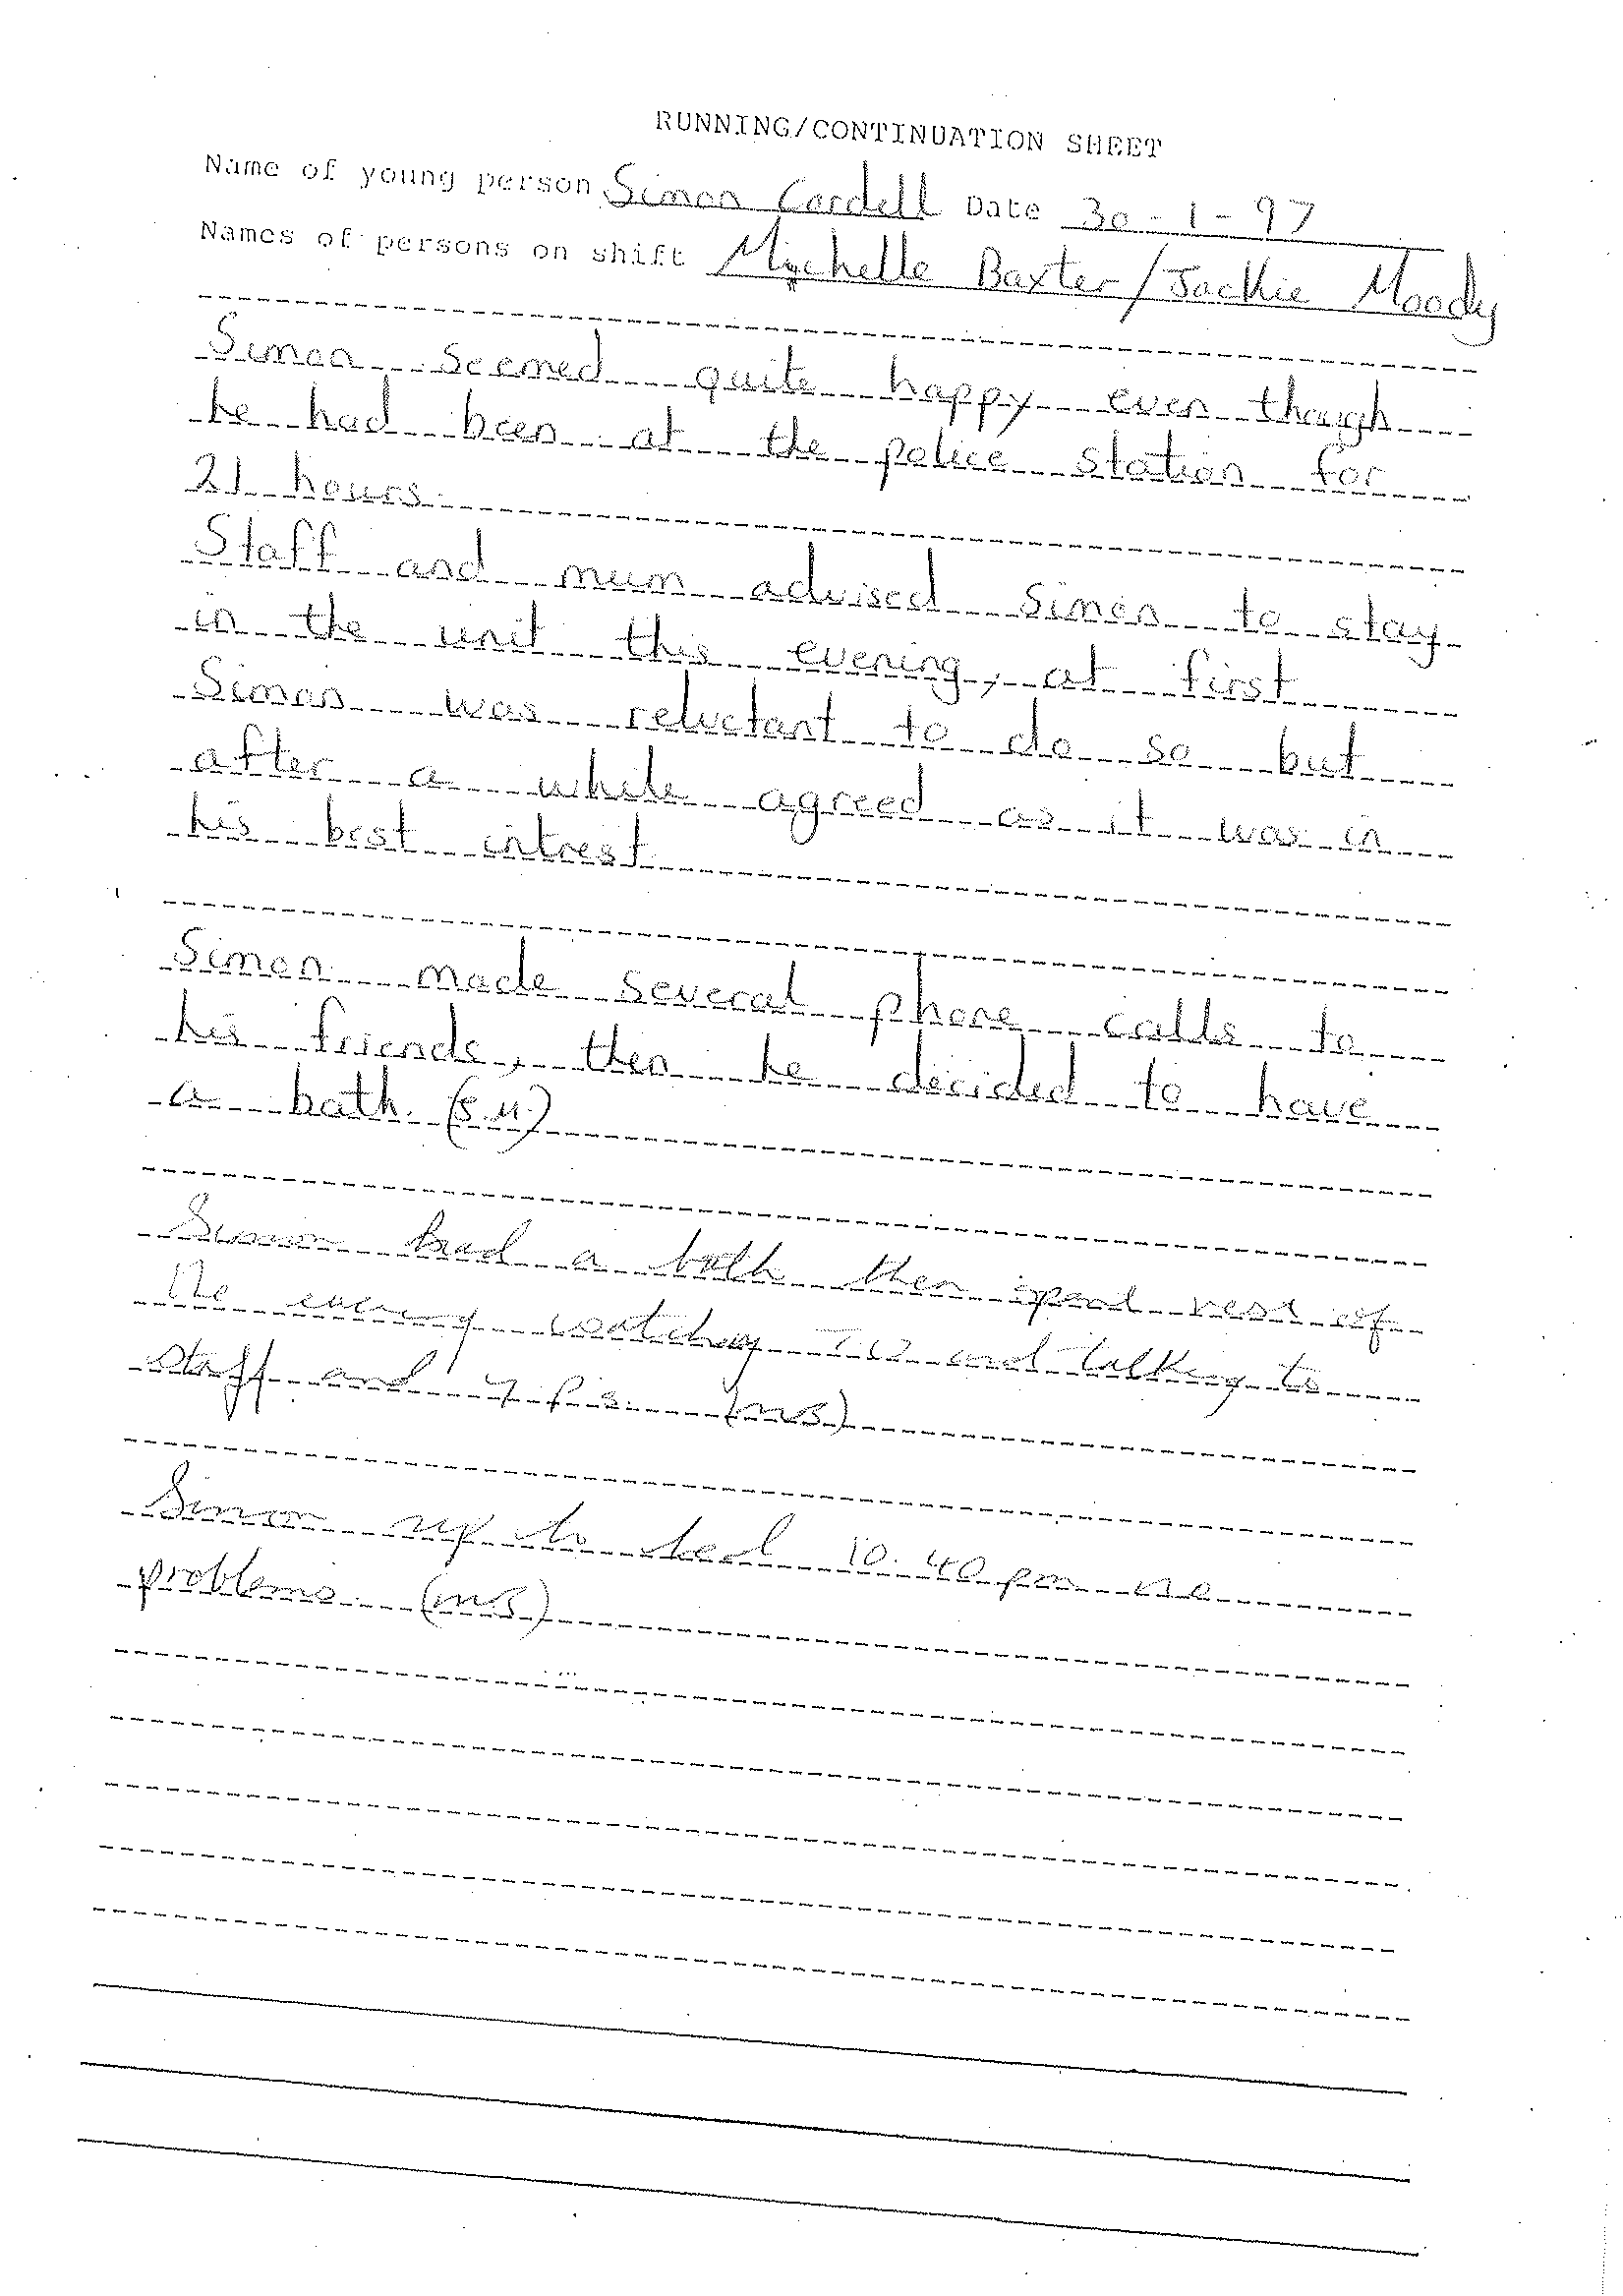 RUNNING/CONTINUATION SHEET
Name of young person Simon Cordell Date 30-1-97
Names of persons on shift Michelle Baxter/Jackie Moody
Simon seemed quite happy even though
he had been at the police station for
21 hours.
Staff and mum advised Simon to stay
in the unit this evening, at first
Simon was reluctant to do so but
after a while agreed as it was in
his best intrest.
Simon made several phone calls to
his friends, then he decided to have
a bath.
Simon had a bath then spent rest of
the evening watching T.V and talking to
staff and y.p.s. (MB)
Simon up to bed 10.40pm no
problems (MB)